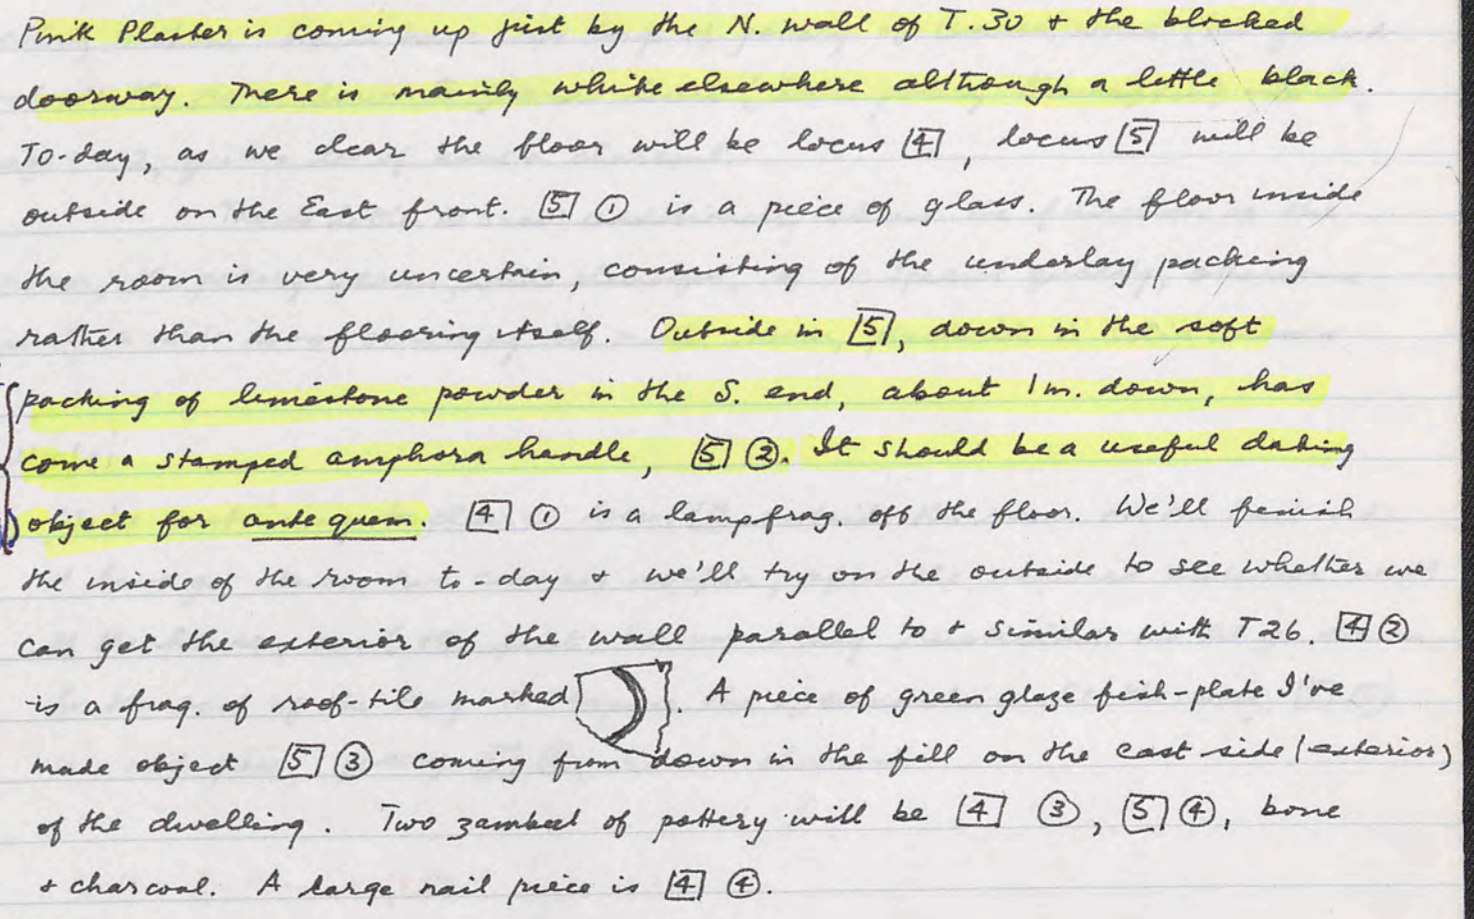 Pink Plaster is coming up just by the N. wall of T.30 + the blocked
doorway. There is mainly white elsewhere although a little black.
To-day, as we clear the floor will be locus [4], locus [5] will be
outside on the East front. [5] ① is a piece of glass. The floor inside
the room is very uncertain, consisting of the underlay packing
rather than the flooring itself. Outside in [5], down in the soft
packing of limestone powder in the S. end, about 1m. down, has
come a stamped amphora handle, [5] ②. It should be a useful dating
object for ante quem. [4] ① is a lamp frag. off the floor. We'll finish
the inside of the room to-day + we'll try on the outside to see whether we
can get the exterior of the wall parallel to + similar with T26. [4] ②
is a frag. of roof-tile marked . A piece of green glaze fish-plate I've
made object [5] ③ coming from down in the fill on the east side (exterior)
of the dwelling. Two zambeel of pottery will be [4] ③, [5] ④, bone
+ charcoal. A large nail piece is [4] ④.